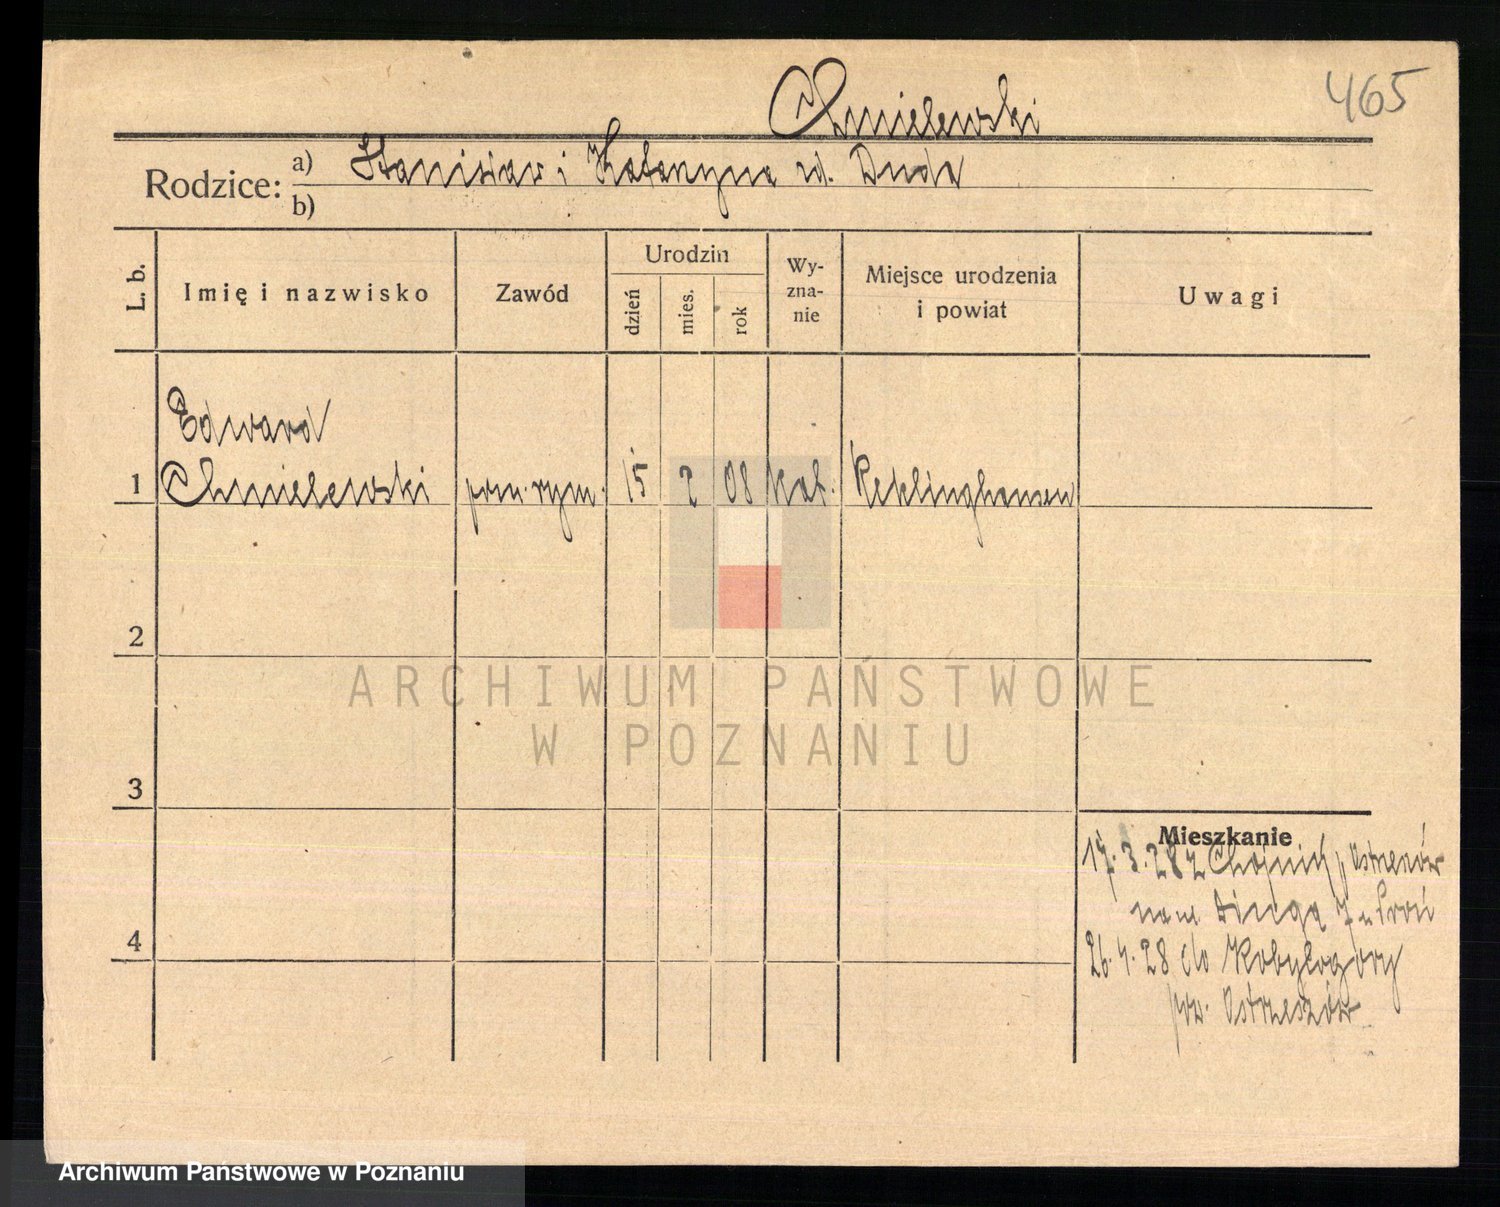 465
Chmielewski
Rodzice: a) Stanisław i Katarzyna zd. Duda
b)
L. b.
Imię i nazwisko
Zawód
Urodzin
dzień
mies.
rok
Wy-
zna-
nie
Miejsce urodzenia
i powiat
Uwagi
Edward
1 Chmielewski pom. rym. 15 2 08 kat. Reklinghausen
2
3
4
Mieszkanie
17.3.28 z Chojnik p. Ostrzeszów
na ul. 7
26.4.28 do Kobylogóry
pow. Ostrzeszów
ARCHIWUM PAŃSTWOWE
W POZNANIU
Archiwum Państwowe w Poznaniu